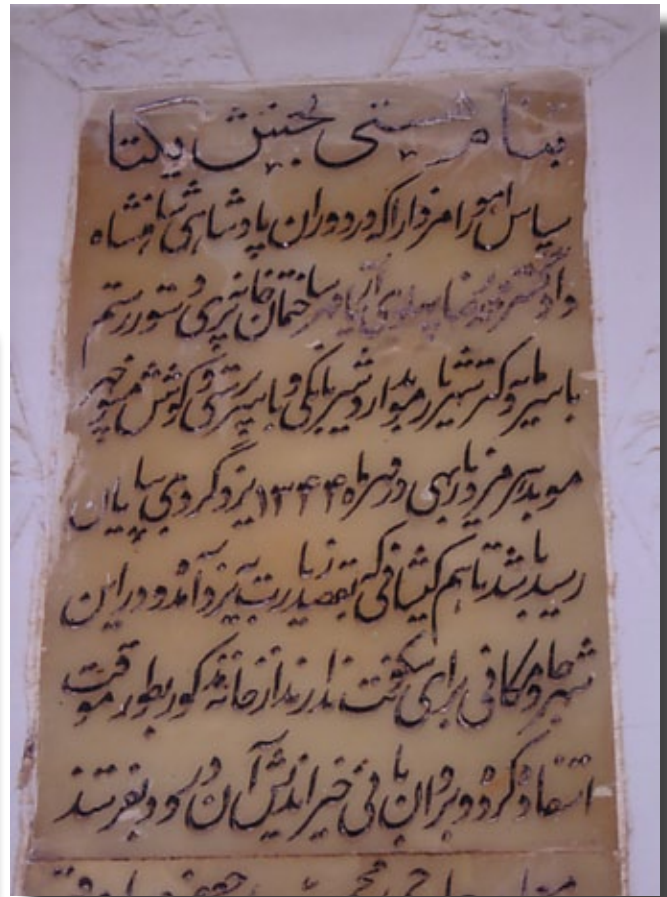 بنام هستی بخش یکتا
سپاس اهورامزدا را که در دوران پادشاهی شاهنشاه
دادگستر محمدرضا پهلوی آریامهر ساختمان خانه پری دستور رستم
با سرمایه دکتر شهریار موبد اردشیر بانکی و با سرپرستی و کوشش
موبد هرمزدیار در مهر ماه ۱۳۴۴ یزدگردی بپایان
رسید باشد تا هم کیشانی که بقصد زیارت به یزد آمده و در این
شهر جا و مکانی برای سکونت ندارند از خانه مذکور بطور موقت
استفاده کرده و بروان بانی خیراندیش آن درود بفرستند